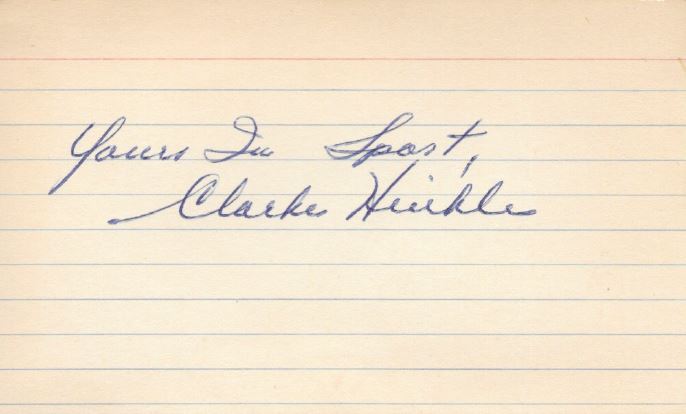 Yours In Sport,
Clarke Hinkle